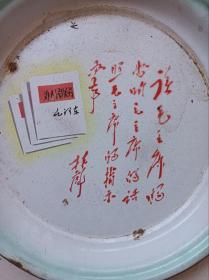 读毛主席的
书听毛主席的话
照毛主席的指示
办事
林彪
为人民服务
毛泽东